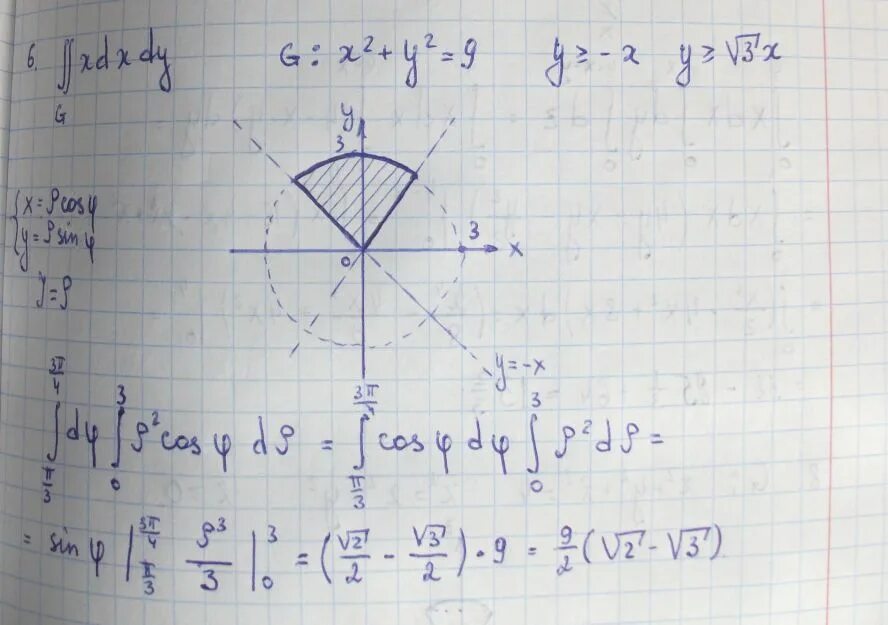 6. ∬ x dx dy G: x² + y² = 9 y ≥ -x y ≥ √3 x
G
y
3
{ x = ρ cos φ
{ y = ρ sin φ
3
0
x
J = ρ
y = -x
∫_{π/3}^{3π/4} dφ ∫_0^3 ρ² cos φ dρ = ∫_{π/3}^{3π/4} cos φ dφ ∫_0^3 ρ² dρ =
= sin φ |_{π/3}^{3π/4} ρ³/3 |_0^3 = (√2/2 - √3/2) · 9 = 9/2 (√2 - √3)